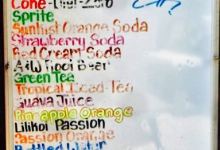 Coke - Diet - Zero
Sprite
Sunkist Orange Soda
Strawberry Soda
Red Cream Soda
A&W Root Beer
Green Tea
Tropical Iced-Tea
Guava Juice
Pineapple Orange
Lilikoi Passion
Passion Orange
Bottled Water